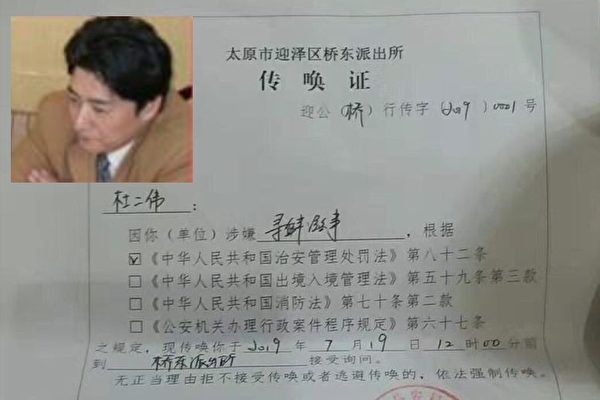 太原市迎泽区桥东派出所
传唤证
迎公(桥)行传字(2019)0001号
杜二伟:
因你(单位)涉嫌寻衅滋事,根据
☑《中华人民共和国治安管理处罚法》第八十二条
□《中华人民共和国出境入境管理法》第五十九条第三款
□《中华人民共和国消防法》第七十条第二款
□《公安机关办理行政案件程序规定》第六十七条
之规定,现传唤你于2019年7月19日12时00分前
到桥东派出所接受询问。
无正当理由拒不接受传唤或者逃避传唤的,依法强制传唤。